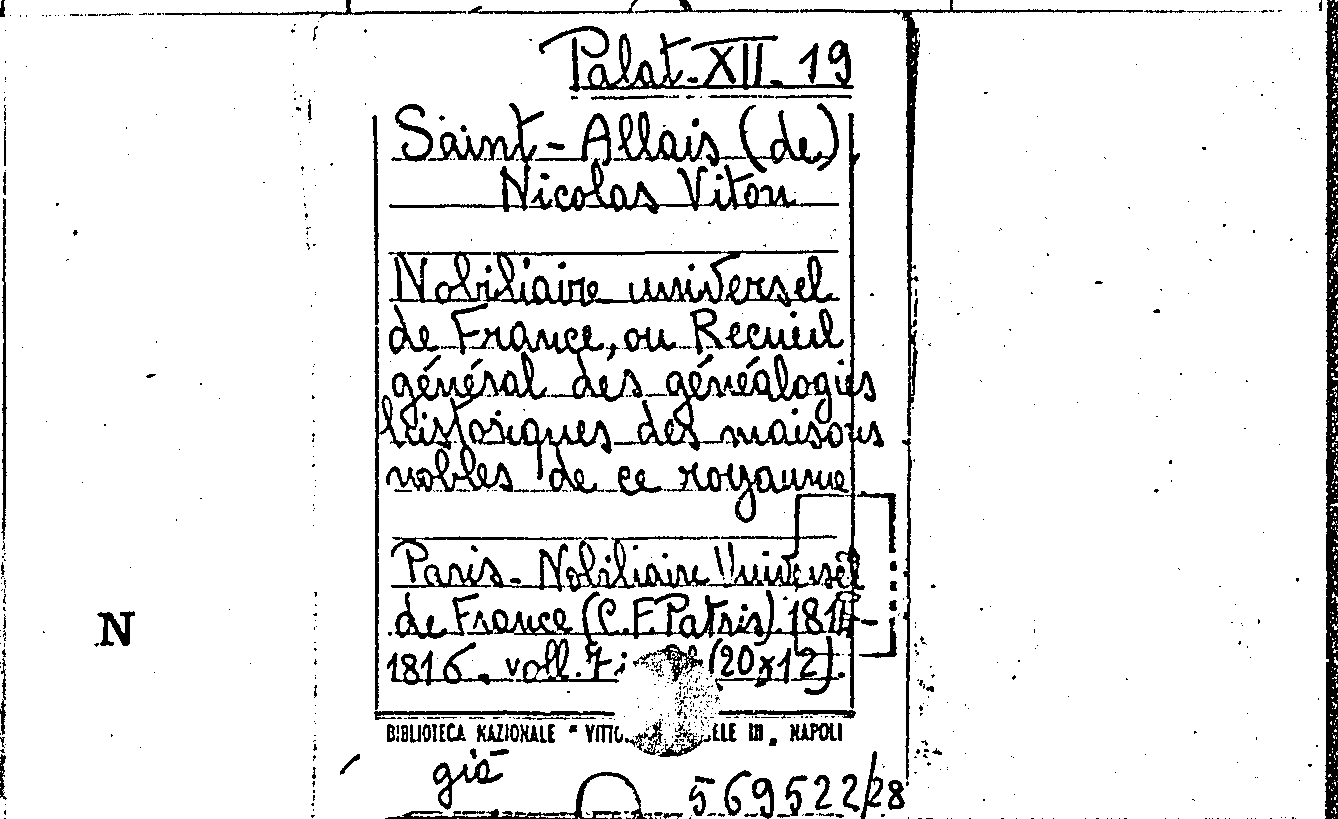 Palat. XII. 19
Saint-Allais (de)
Nicolas Viton
Nobiliaire universel
de France, ou Recueil
général des généalogies
historiques des maisons
nobles de ce royaume
Paris - Nobiliaire Universel
de France (C.F. Patris) 1814-
1816. voll. 7 (20x12).
BIBLIOTECA NAZIONALE " VITTO ELE III „ NAPOLI
già
569522/28
N